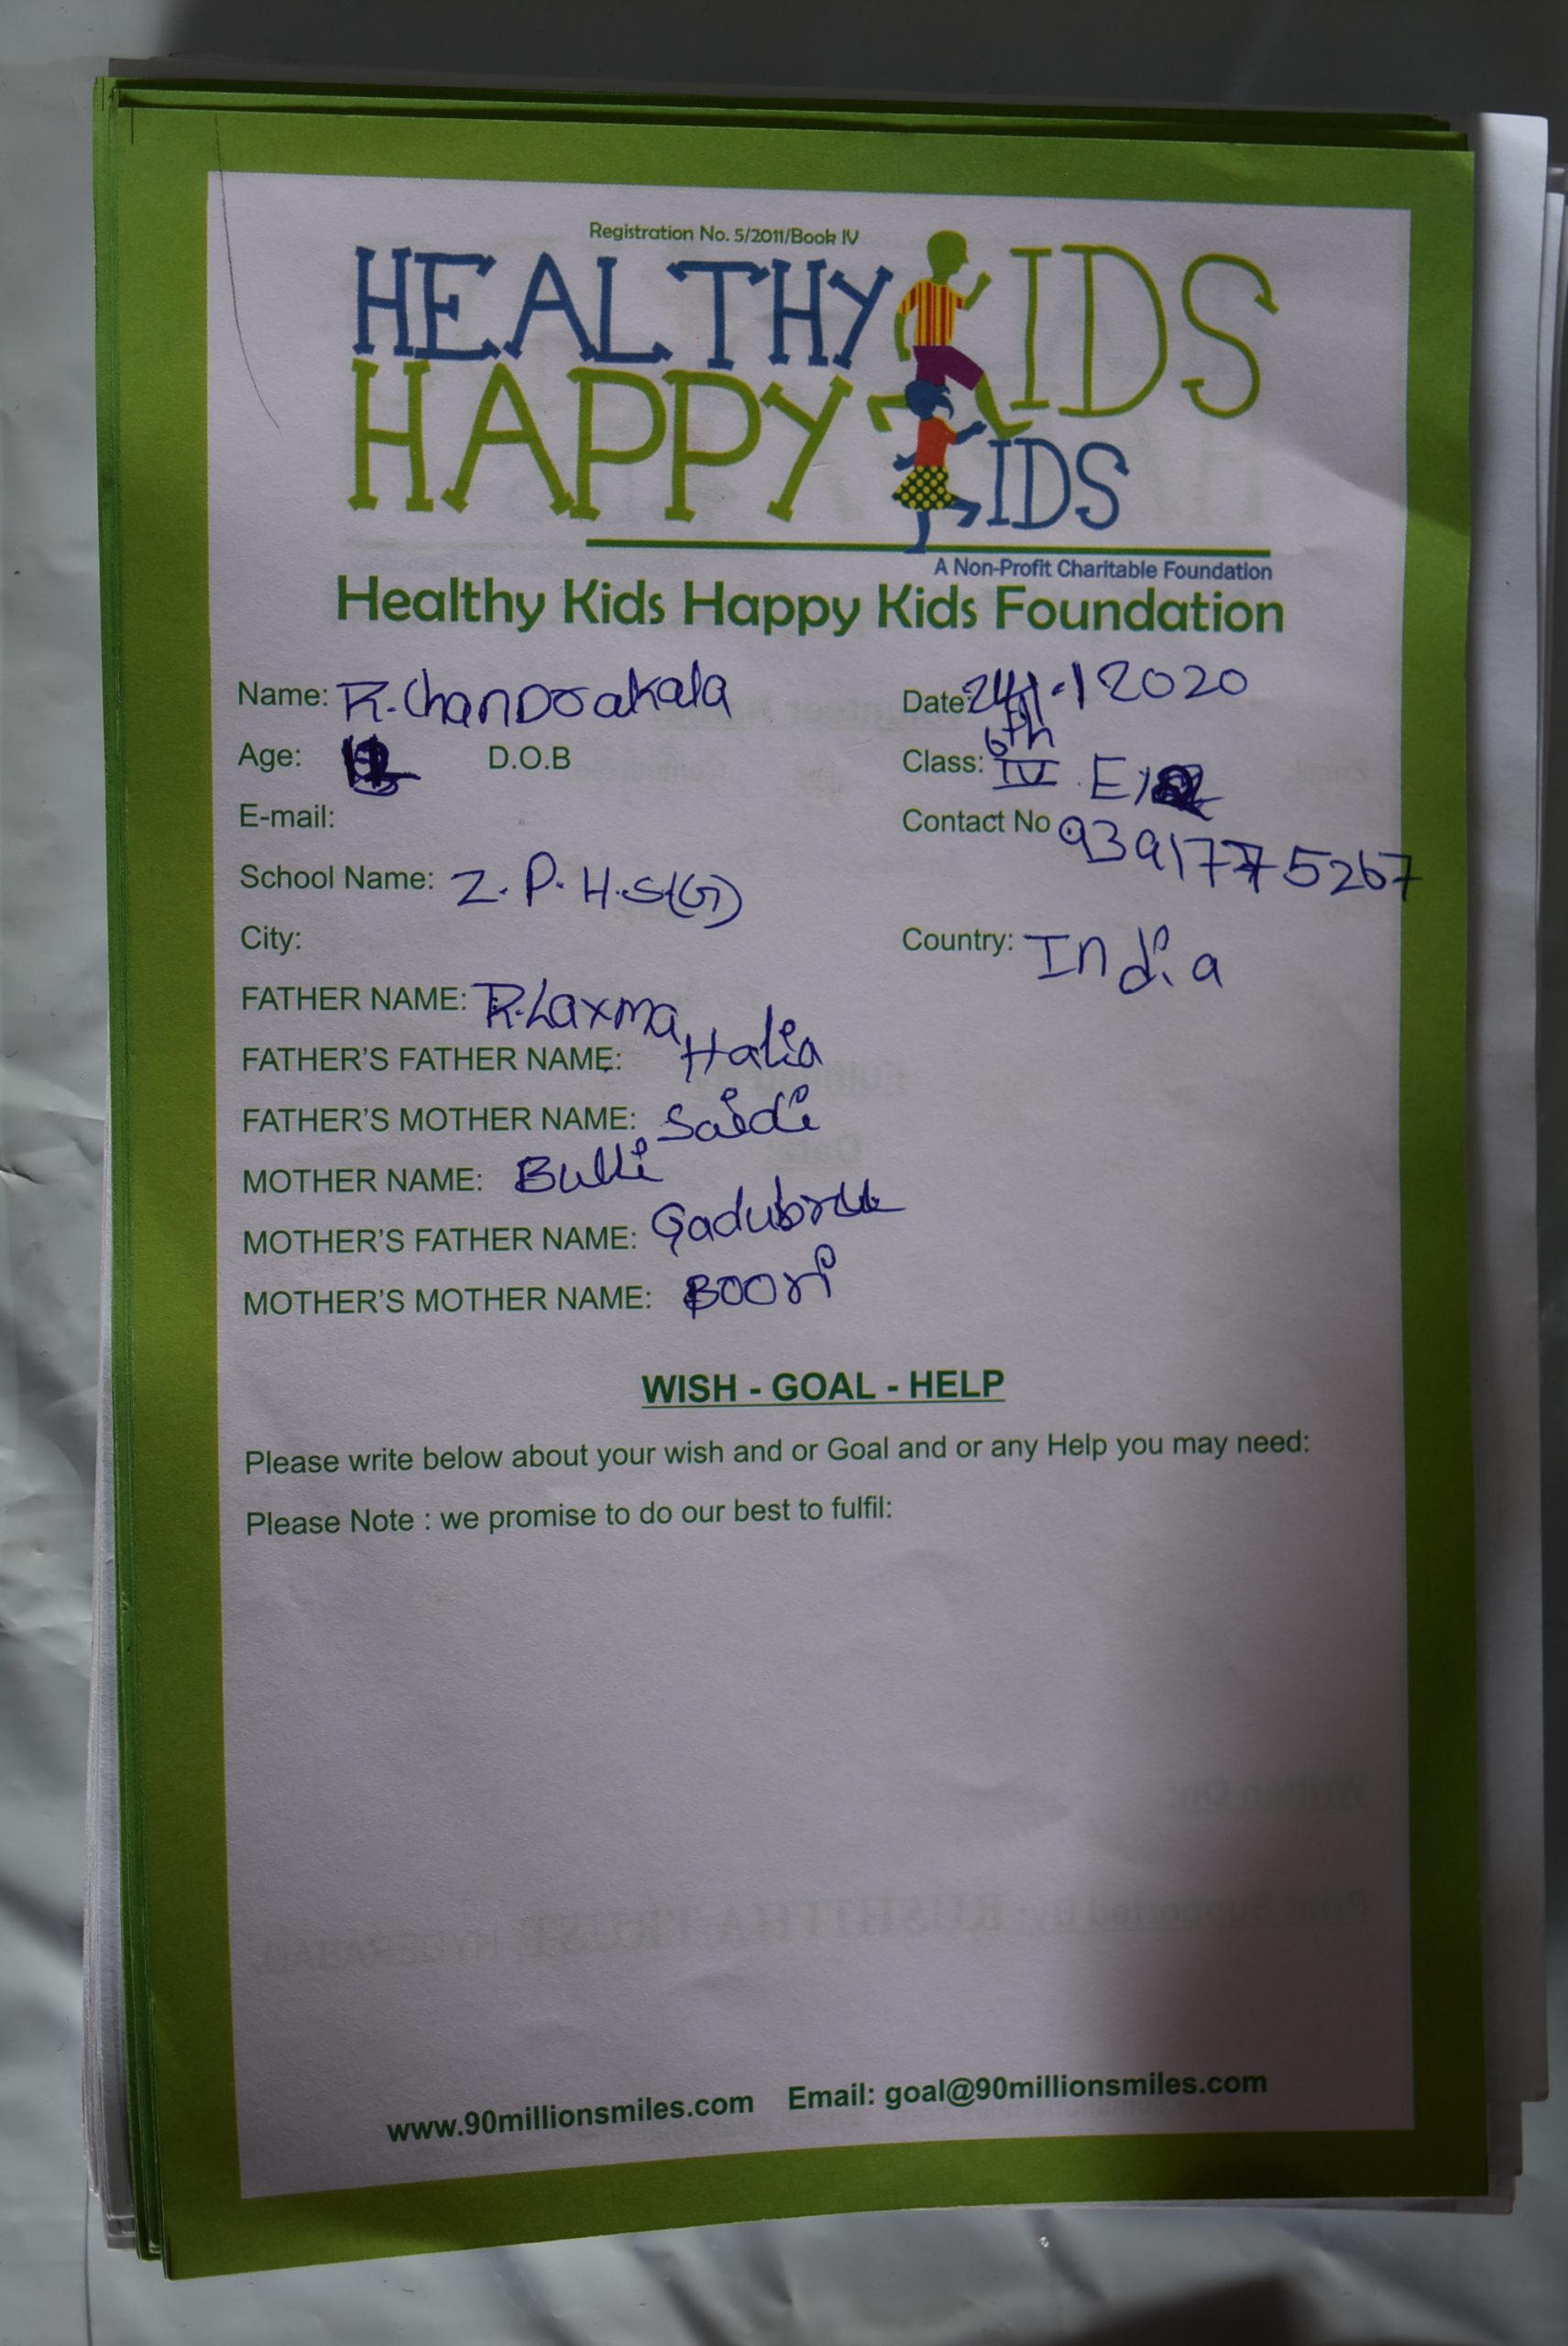 Registration No. 5/2011/Book IV
HEALTHY KIDS
HAPPY KIDS
A Non-Profit Charitable Foundation
Healthy Kids Happy Kids Foundation
Name: R. Chandrakala Date: 2020
Age: D.O.B Class: 6th IV E/M
E-mail: Contact No
School Name: Z. P. H. S (G)
City: Country: India
FATHER NAME: R. Laxma
FATHER'S FATHER NAME: Halia
FATHER'S MOTHER NAME: Saidi
MOTHER NAME: Bulli
MOTHER'S FATHER NAME:
MOTHER'S MOTHER NAME: Boori
WISH - GOAL - HELP
Please write below about your wish and or Goal and or any Help you may need:
Please Note : we promise to do our best to fulfil:
www.90millionsmiles.com Email: goal@90millionsmiles.com